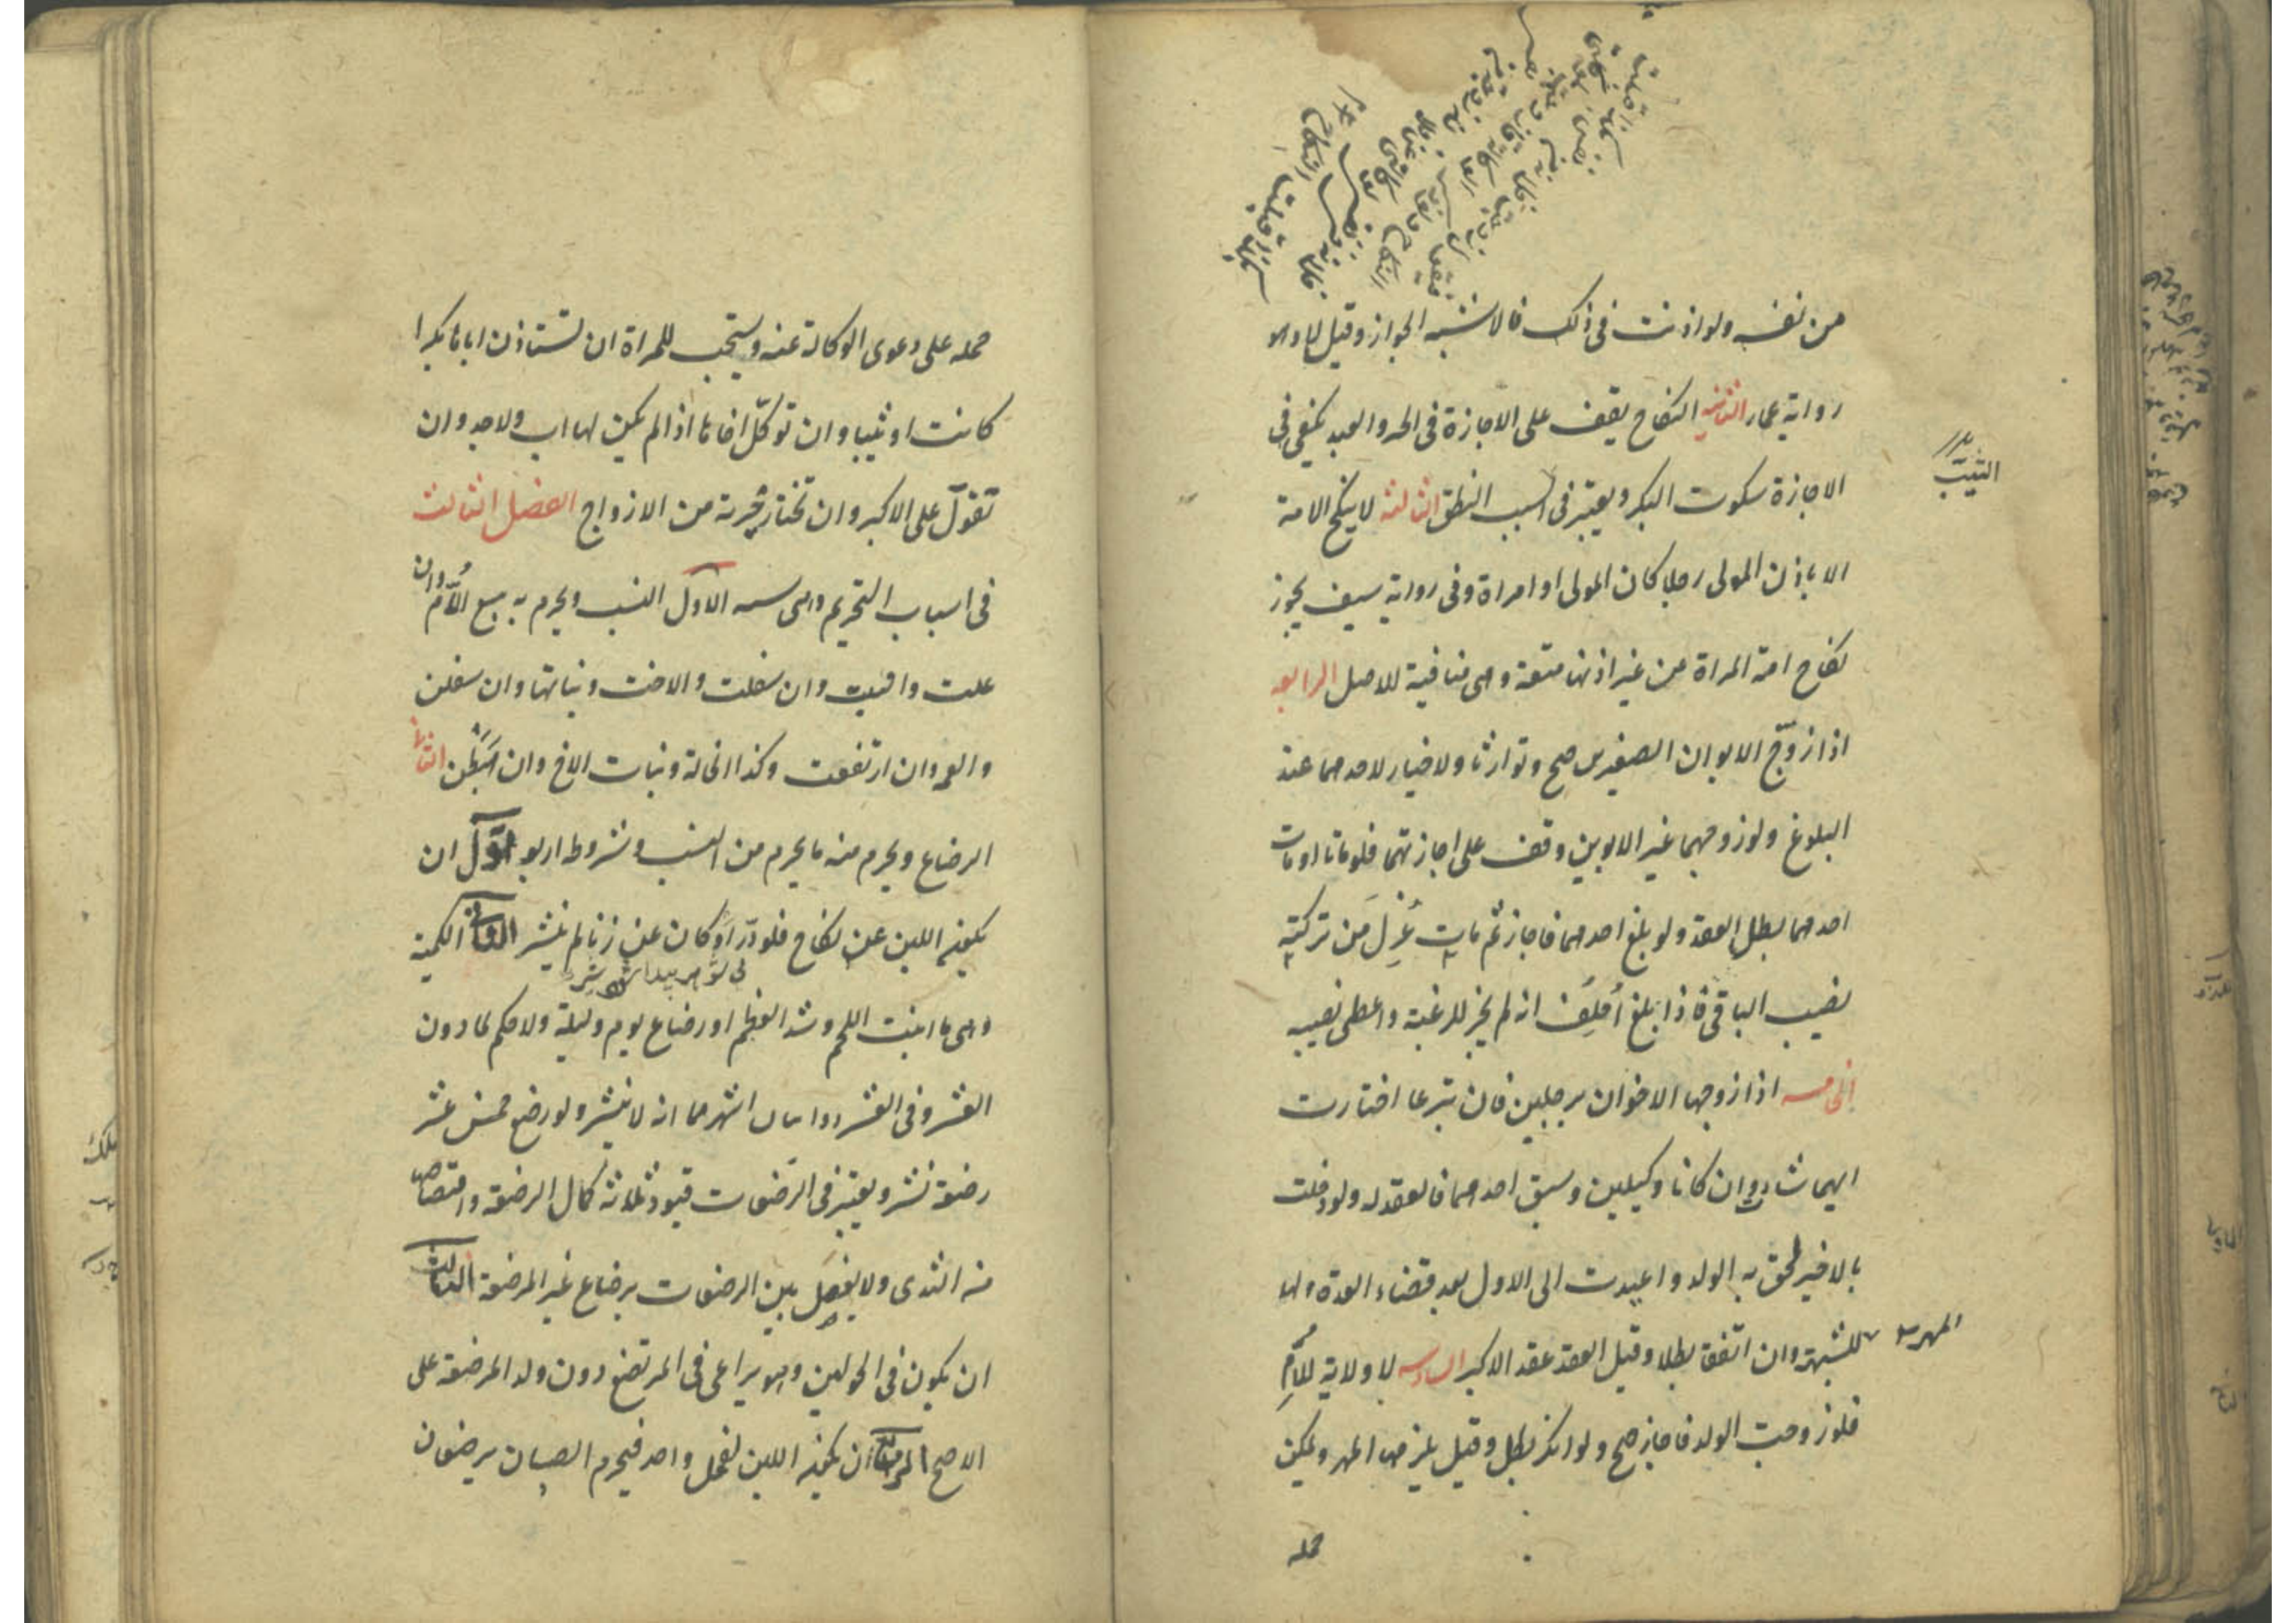 من نفسه ولو اذنت فى ذلك فالاشبه الجواز وقيل لا وهو
رواية عمار الثانية النكاح يقف على الاجازة فى الحر والعبد يكفى فى
الاجازة سكوت البكر ويعتبر فى الثيب النطق الثالثة لا ينكح الامة
الثيب
الا باذن المولى رجلا كان المولى او امراة وفى رواية سيف يجوز
نكاح امة المراة من غير اذنها متعة وهى منافية للاصل الرابعة
اذا زوّج الابوان الصغيرين صح وتوارثا ولا خيار لاحدهما عند
البلوغ ولو زوجهما غير الابوين وقف على اجازتهما فلو ماتا او مات
احدهما بطل العقد ولو بلغ احدهما فاجاز ثم مات عُزِلَ من تركته
نصيب الباقى فاذا بلغ اُحلِف انه لم يجز للرغبة واعطى نصيبه
الخامسة اذا زوجها الاخوان برجلين فان تبرعا اختارت
ايهما شاءت وان كانا وكيلين وسبق احدهما فالعقد له ولو دخلت
بالاخير لحق به الولد واعيدت الى الاول بعد قضاء العدة ولها
المهر للشبهة وان اتفقا بطلا وقيل العقد عقد الاكبر السادسة لا ولاية للاُمِّ
فلو زوجت الولد فاجاز صح ولو انكر بطل وقيل يلزمها المهر ويمكن
حمله
حمله على دعوى الوكالة عنه ويستحب للمراة ان تستاذن اباها بكرا
كانت او ثيبا وان توكّل اخاها اذا لم يكن لها اب ولا جد وان
تعوّل على الاكبر وان تختار خيرته من الازواج الفصل الثالث
فى اسباب التحريم وهى ستة الاول النسب ويحرم به سبع الاُمّ وان
علت والبنت وان سفلت والاخت وبناتها وان سفلن
والعمة وان ارتفعت وكذا الخالة وبنات الاخ وان هَبَطْن الثانى
الرضاع ويحرم منه ما يحرم من النسب وشروطه اربعة الاوّل ان
يكون اللبن عن نكاح فلو درّ او كان عن زنا لم ينشر الثانى الكمية
وهى ما انبت اللحم وشد العظم او رضاع يوم وليلة ولا حكم لما دون
العشر وفى العشر روايتان اشهرهما انه لا ينشر ولو رضع خمس عشر
رضعة نشر ويعتبر فى الرضعات قيود ثلاثة كمال الرضعة وامتصاصها
من الثدى ولا يفصل بين الرضعات برضاع غير المرضعة الثالث
ان يكون فى الحولين وهو يراعى فى المرتضع دون ولد المرضعة على
الاصح الرابع ان يكون اللبن لفحل واحد فيحرم الصبيان يرضعون